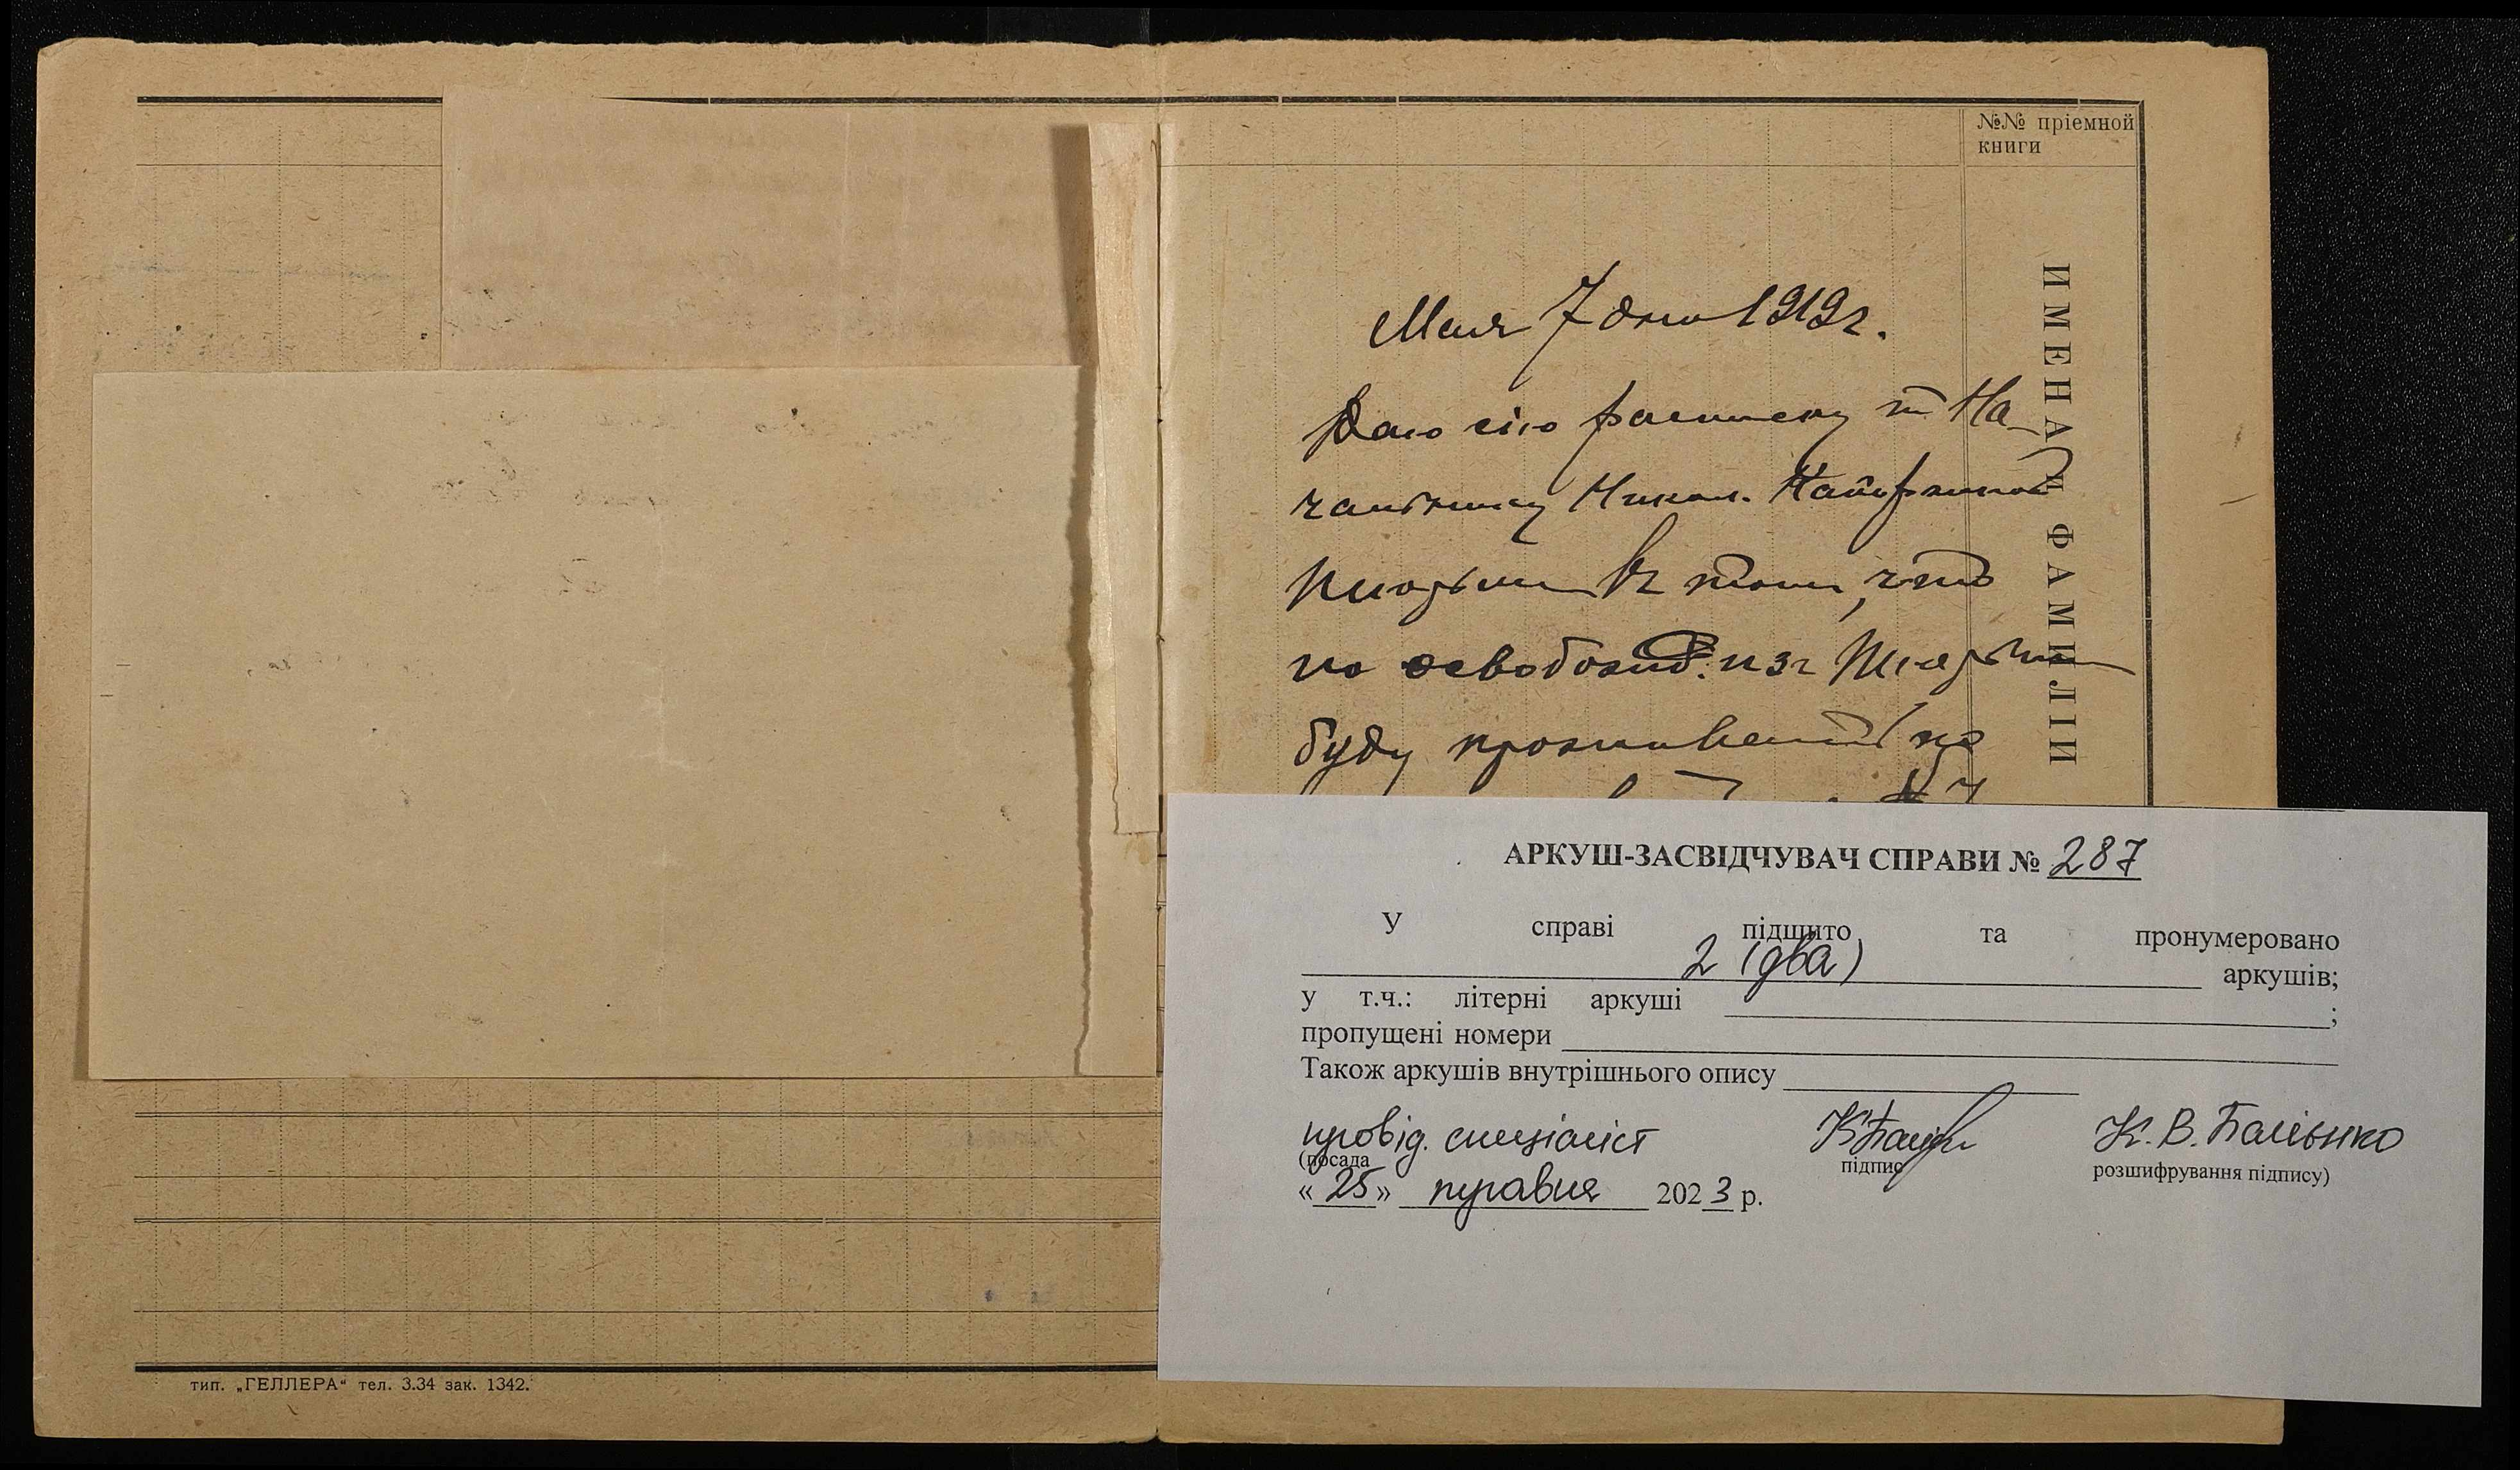 №№ пріемной
книги
ИМЕНА И ФАМИЛІИ
Мая 7 дня 1919 г.
Даю сію расписку т На-
чальнику Никол. Каторжной
Тюрьмы въ томъ, что
по освобожд. изъ Тюрьмы
буду проживать по
АРКУШ-ЗАСВІДЧУВАЧ СПРАВИ № 287
У справі підшито та пронумеровано
2 (два) аркушів;
у т.ч.: літерні аркуші ;
пропущені номери
Також аркушів внутрішнього опису
провід. спеціаліст К. В. Балько
(посада підпис розшифрування підпису)
« 25 » травня 2023 р.
тип. „ГЕЛЛЕРА“ тел. 3.34 зак. 1342.